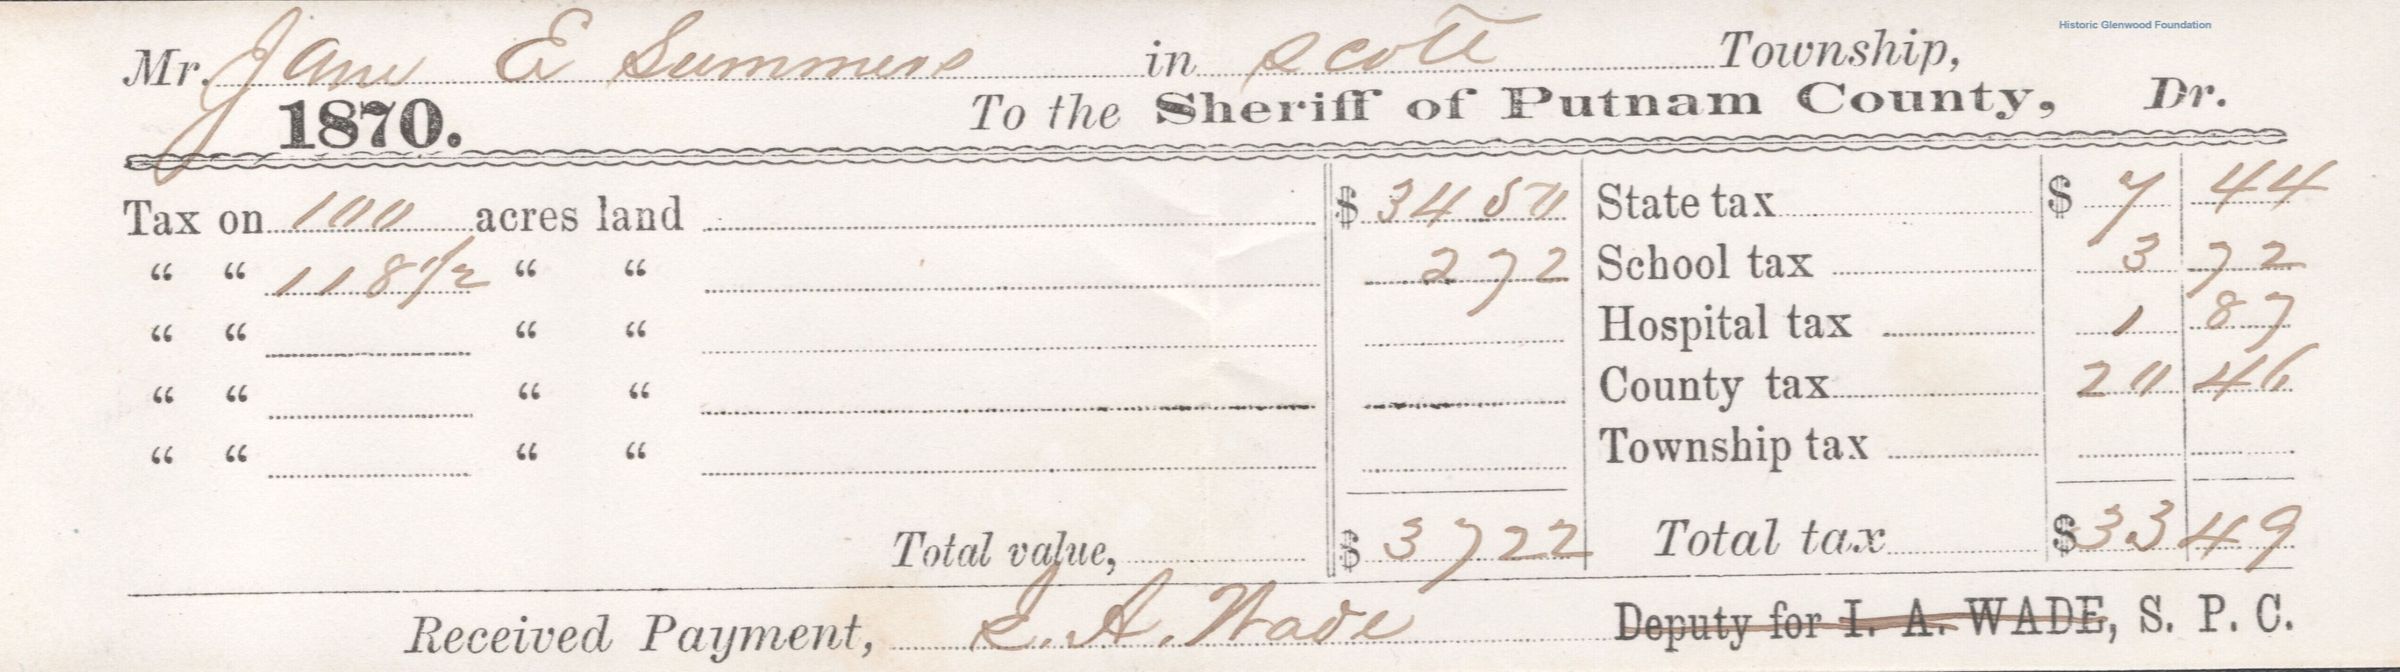 Historic Glenwood Foundation
Mr. Jane E Summers in Scott Township,
1870. To the Sheriff of Putnam County, Dr.
Tax on 100 acres land $ 3450 State tax $ 7 44
“ “ 118 1/2 “ “ 272 School tax 3 72
“ “ “ “ Hospital tax 1 87
“ “ “ “ County tax 20 46
“ “ “ “ Township tax
Total value, $ 3722 Total tax $ 33 49
Received Payment, I. A. Wade Deputy for I. A. WADE, S. P. C.